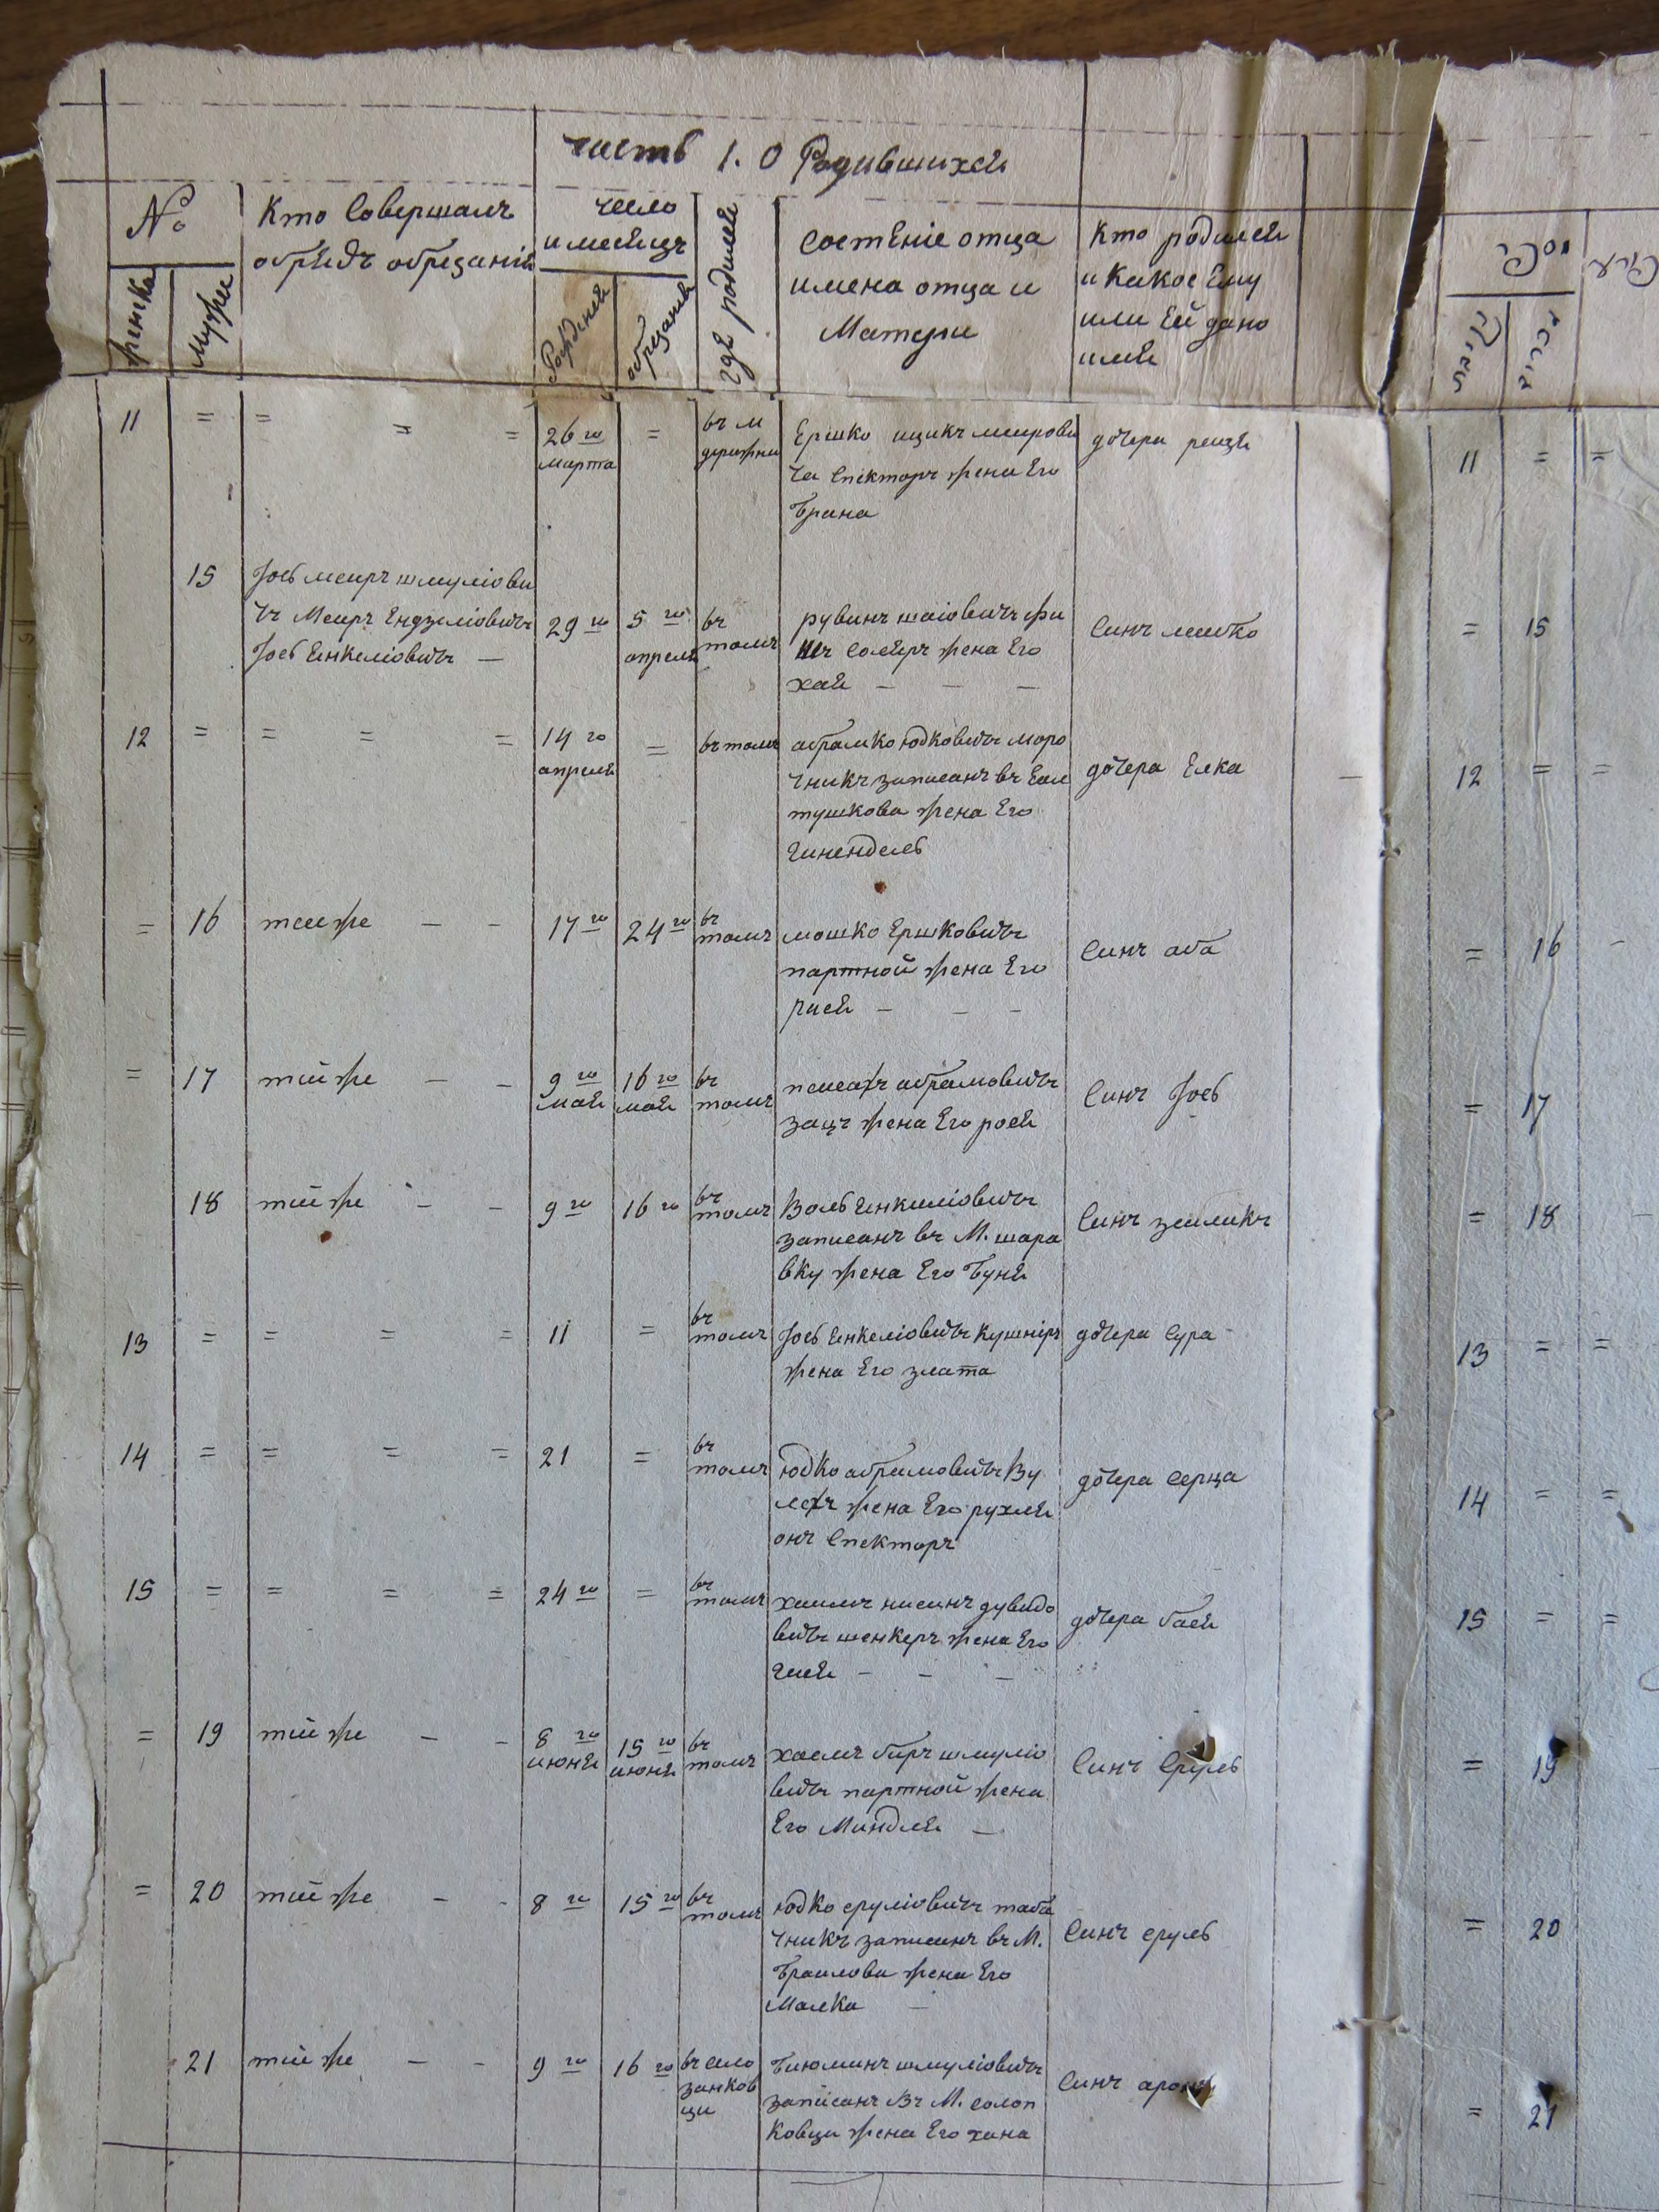 часть 1. О Родившихся
№
женска
мужи
Кто Совершалъ
обрядъ обрезанія
число
и месяцъ
Рожденія
обрезанія
где родился
состеніе отца
имена отца и
Матери
Кто родился
и Какое Ему
или Ей дано
имя
11 = = = =
26 го
марта
=
въ м
деражни
Ершко ицикъ меирови
ча спекторъ жена Его
Брана
дочера реизя
15
Іось меиръ шмуліови
чъ Меиръ Ендзеліовичъ
Іось Енкеліовичъ —
29 го
5 го
апреля
въ
томъ
рувинъ шаіовичъ фи
шъ жена Его
хая — — —
Синъ лейко
12 = = = =
14 го
апреля
=
въ томъ
абрамко юдковичъ моро
чникъ записанъ въ Ели
тушкова жена Его
Гинендель
дочера Елка
= 16 тойже — —
17 го
24 го
въ
томъ
мошко Ершковичъ
партной жена Его
рися — — —
Синъ аба
= 17 тойже — —
9 го
мая
16 го
мая
въ
томъ
пейсахъ абрамовичъ
зацъ жена Его рося
Синъ Іось
18 тойже — —
9 го
16 го
въ
томъ
Воль Енкиліовичъ
записанъ въ М. шара
вку жена Его Буня
Синъ зейликъ
13 = = = =
11
=
въ
томъ
Іось Енкеліовичъ Кушніръ
жена Его злата
дочера Сура
14 = = = =
21
=
въ
томъ
юдко абрамовичъ Ву
лехъ жена Его рухля
онъ Спекторъ
дочера Серца
15 = = = =
24 го
=
въ
томъ
хаимъ нисинъ дувидо
вичъ шенкеръ жена Его
гися — — —
дочера бася
= 19 тойже — —
8 го
июня
15 го
июня
въ
томъ
хаемъ беръ шмуліо
вичъ партной жена
Его Миндля —
Синъ Сруль
= 20 тойже — —
8 го
15 го
въ
томъ
юдко сруліовичъ таба
чникъ записанъ въ М.
Браилова жена Его
Малка —
Синъ сруль
21 тойже — —
9 го
16 го
въ село
занков
ци
Бинюминъ шмуліовичъ
записанъ въ М. солоп
ковци жена Его хана
Синъ аронъ
11 = =
= 15
12 = =
= 16
= 17
= 18
13 = =
14 = =
15 = =
= 19
= 20
= 21